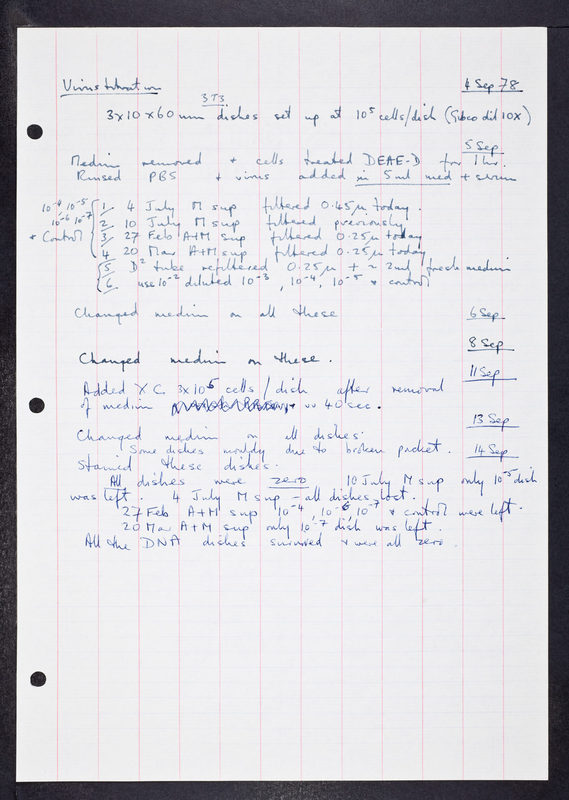 Virus titration 4 Sep 78
3T3
3 x 10 x 60 mm dishes set up at 10⁵ cells/dish (Gibco dil 10X)
5 Sep
Medium removed + cells treated DEAE-D for 1 hr.
Rinsed PBS + virus added in 5 ml med + serum
10⁻⁴ 10⁻⁵ 1/ 4 July M sup filtered 0.45μ today.
10⁻⁶ 10⁻⁷ 2 10 July M sup filtered previously
+ Control 3/ 27 Feb A+M sup filtered 0.25μ today
4 20 Mar A+M sup filtered 0.25μ today
5 D² tube refiltered 0.25μ + ~ 2ml fresh medium
6. use 10⁻² diluted 10⁻³, 10⁻⁴, 10⁻⁵ + control
Changed medium on all these 6 Sep
8 Sep
Changed medium on these.
11 Sep
Added XC 3x10⁵ cells/dish after removal
of medium 40 sec.
13 Sep
Changed medium on all dishes.
Some dishes mouldy due to broken packet. 14 Sep
Stained these dishes.
All dishes were zero 10 July M sup only 10⁻⁵ dish
was left. 4 July M sup - all dishes lost.
27 Feb A+M sup 10⁻⁴, 10⁻⁶ 10⁻⁷ + control were left.
20 Mar A+M sup only 10⁻⁷ dish was left.
All the DNA dishes survived + were all zero.